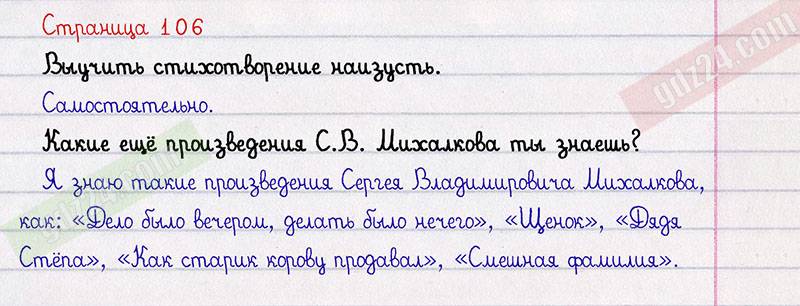 Страница 106
Выучить стихотворение наизусть.
Самостоятельно.
Какие ещё произведения С.В. Михалкова ты знаешь?
Я знаю такие произведения Сергея Владимировича Михалкова,
как: «Дело было вечером, делать было нечего», «Щенок», «Дядя
Стёпа», «Как старик корову продавал», «Смешная фамилия».
gdz24.com
gdz24.com